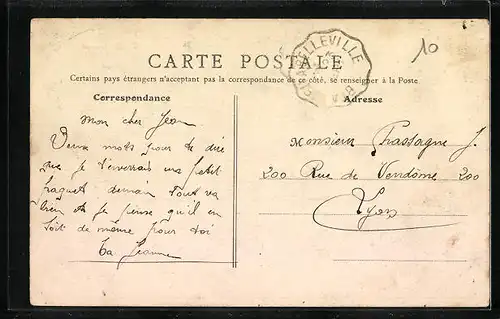 10
CARTE POSTALE
CHAPELLEVILLE
Certains pays étrangers n'acceptant pas la correspondance de ce côté, se renseigner à la Poste
Correspondance
Adresse
Mon cher Jean
Deux mots pour te dire
que je t'enverrais un petit
paquet demain Tout va
bien et je pense qu'il en
soit de même pour toi
Ta Jeanne
Monsieur J.
200 Rue de Vendôme 200
Lyon